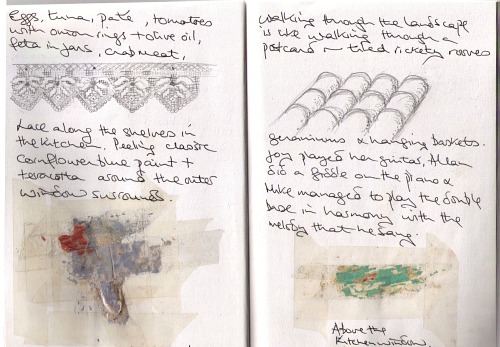 eggs, tuna, paté, tomatoes
with onion rings + olive oil,
feta in jars, crabmeat,
Lace along the shelves in
the kitchen. Peeling classic
cornflower blue paint +
terracotta around the outer
window surrounds.
walking through the landscape
is like walking through a
postcard
tiled rickety rooves
geraniums & hanging baskets.
Joy played her guitar, Allan
did a fiddle on the piano &
Mike managed to play the double
base in harmony with the
melody that he sang.
Above the
Kitchen window.